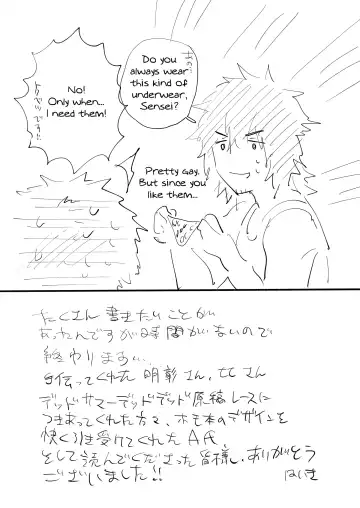 Do you
always wear
this kind of
underwear,
Sensei?
No!
Only when...
I need them!
Pretty gay.
But since you
like them...
たくさん書きたいことが
あったんですが時間がないので
終わりまぁい
手伝ってくれた明彰さん、七さん
デッドサマーデッドデッド原稿レースに
つきあってくれた方々、ホモ本のデザインを
快く引き受けてくれたA氏
そして読んでくださった皆様、ありがとう
ございました!!